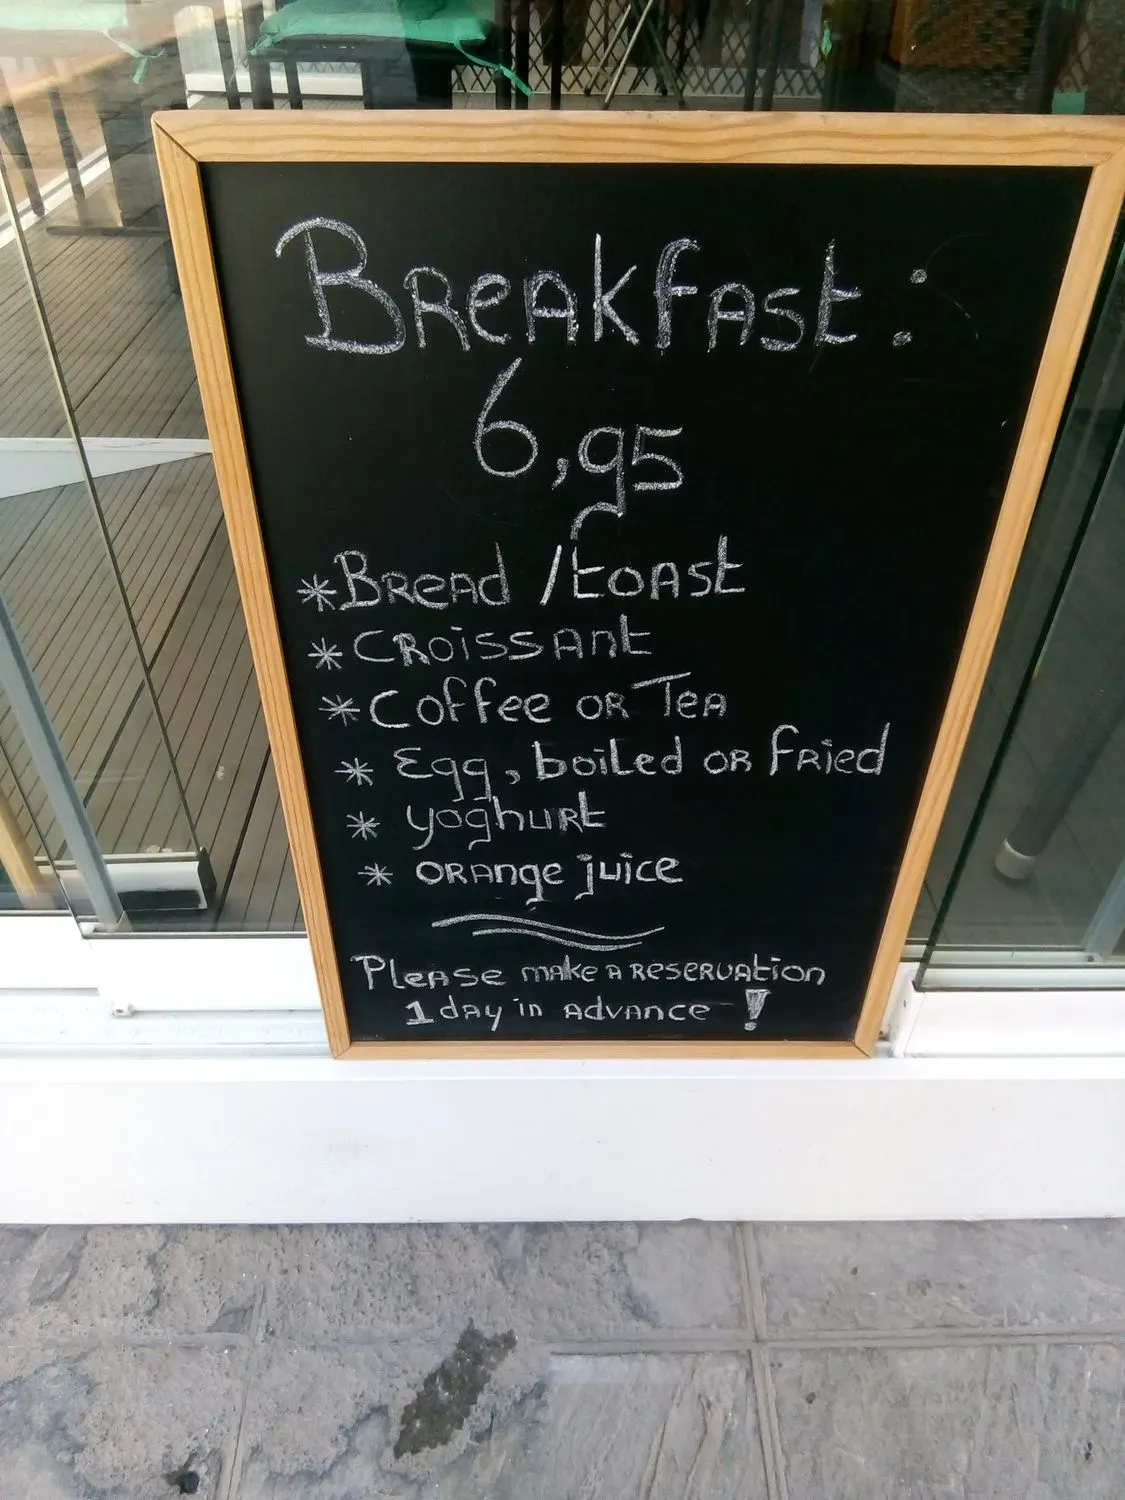 Breakfast:
6,95
* Bread / toast
* Croissant
* Coffee or Tea
* Egg, boiled or fried
* yoghurt
* orange juice
Please make a reservation
1 day in advance !